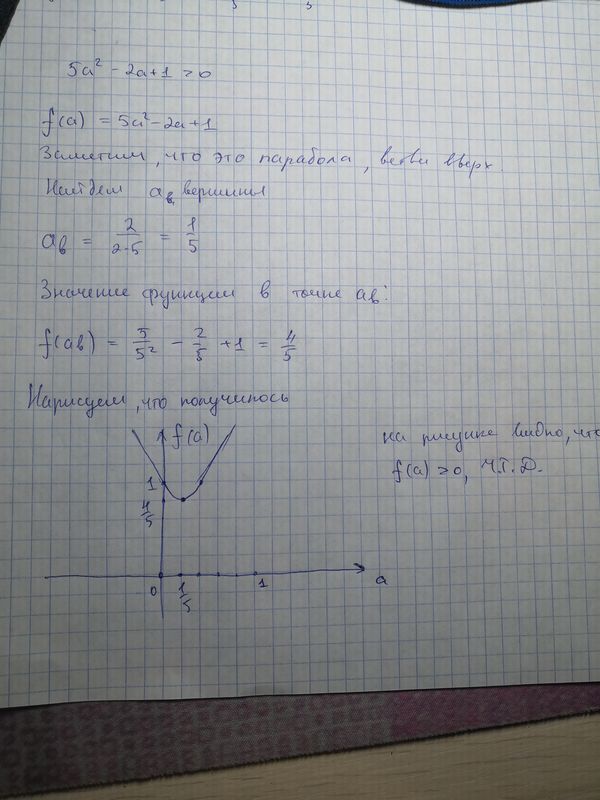 5a² - 2a + 1 > 0
f(a) = 5a² - 2a + 1
Заметим, что это парабола, ветви вверх.
Найдем aв вершины
aв = 2/(2·5) = 1/5
Значение функции в точке aв:
f(aв) = 5/5² - 2/5 + 1 = 4/5
Нарисуем, что получилось
f(a)
на рисунке видно, что
f(a) > 0, Ч.Т.Д.
1
4/5
0 1/5 1 a